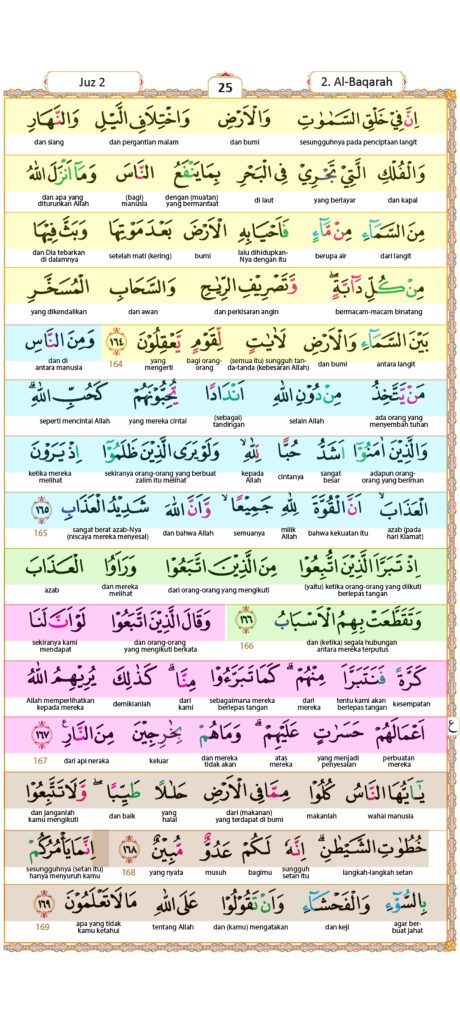 Juz 2
25
2. Al-Baqarah
اِنَّ فِيْ خَلْقِ السَّمٰوٰتِ وَالْاَرْضِ وَاخْتِلَافِ الَّيْلِ وَالنَّهَارِ
sesungguhnya pada penciptaan langit dan bumi dan pergantian malam dan siang
وَالْفُلْكِ الَّتِيْ تَجْرِيْ فِى الْبَحْرِ بِمَا يَنْفَعُ النَّاسَ وَمَآ اَنْزَلَ اللّٰهُ
dan kapal yang berlayar di laut dengan (muatan) yang bermanfaat (bagi) manusia dan apa yang diturunkan Allah
مِنَ السَّمَاۤءِ مِنْ مَّاۤءٍ فَاَحْيَا بِهِ الْاَرْضَ بَعْدَ مَوْتِهَا وَبَثَّ فِيْهَا
dari langit berupa air lalu dihidupkan-Nya dengan itu bumi setelah mati (kering) dan Dia tebarkan di dalamnya
مِنْ كُلِّ دَاۤبَّةٍ ۖ وَّتَصْرِيْفِ الرِّيٰحِ وَالسَّحَابِ الْمُسَخَّرِ
bermacam-macam binatang dan perkisaran angin dan awan yang dikendalikan
بَيْنَ السَّمَاۤءِ وَالْاَرْضِ لَاٰيٰتٍ لِّقَوْمٍ يَّعْقِلُوْنَ ١٦٤ وَمِنَ النَّاسِ
antara langit dan bumi (semua itu) sungguh tan-da-tanda (kebesaran Allah) bagi orang-orang yang mengerti 164 dan di antara manusia
مَنْ يَّتَّخِذُ مِنْ دُوْنِ اللّٰهِ اَنْدَادًا يُّحِبُّوْنَهُمْ كَحُبِّ اللّٰهِ ۗ
ada orang yang menyembah tuhan selain Allah (sebagai) tandingan yang mereka cintai seperti mencintai Allah
وَالَّذِيْنَ اٰمَنُوْٓا اَشَدُّ حُبًّا لِّلّٰهِ ۙ وَلَوْ يَرَى الَّذِيْنَ ظَلَمُوْٓا اِذْ يَرَوْنَ
adapun orang-orang yang beriman sangat besar cintanya kepada Allah sekiranya orang-orang yang berbuat zalim itu melihat ketika mereka melihat
الْعَذَابَ ۙ اَنَّ الْقُوَّةَ لِلّٰهِ جَمِيْعًا ۙ وَّاَنَّ اللّٰهَ شَدِيْدُ الْعَذَابِ ١٦٥
azab (pada hari Kiamat) bahwa kekuatan itu milik Allah semuanya dan bahwa Allah sangat berat azab-Nya (niscaya mereka menyesal) 165
اِذْ تَبَرَّاَ الَّذِيْنَ اتُّبِعُوْا مِنَ الَّذِيْنَ اتَّبَعُوْا وَرَاَوُا الْعَذَابَ
(yaitu) ketika orang-orang yang diikuti berlepas tangan dari orang-orang yang mengikuti dan mereka melihat azab
وَتَقَطَّعَتْ بِهِمُ الْاَسْبَابُ ١٦٦ وَقَالَ الَّذِيْنَ اتَّبَعُوْا لَوْ اَنَّ لَنَا
dan (ketika) segala hubungan antara mereka terputus 166 dan orang-orang yang mengikuti berkata sekiranya kami mendapat
كَرَّةً فَنَتَبَرَّاَ مِنْهُمْ ۗ كَمَا تَبَرَّءُوْا مِنَّا ۗ كَذٰلِكَ يُرِيْهِمُ اللّٰهُ
kesempatan tentu kami akan berlepas tangan dari mereka sebagaimana mereka berlepas tangan dari kami demikianlah Allah memperlihatkan kepada mereka
اَعْمَالَهُمْ حَسَرٰتٍ عَلَيْهِمْ ۗ وَمَا هُمْ بِخَارِجِيْنَ مِنَ النَّارِ ١٦٧ ع
perbuatan mereka yang menjadi penyesalan atas mereka dan mereka tidak akan keluar dari api neraka 167
يٰٓاَيُّهَا النَّاسُ كُلُوْا مِمَّا فِى الْاَرْضِ حَلٰلًا طَيِّبًا ۖ وَّلَا تَتَّبِعُوْا
wahai manusia makanlah dari (makanan) yang terdapat di bumi yang halal dan baik dan janganlah kamu mengikuti
خُطُوٰتِ الشَّيْطٰنِ ۗ اِنَّهٗ لَكُمْ عَدُوٌّ مُّبِيْنٌ ١٦٨ اِنَّمَا يَأْمُرُكُمْ
langkah-langkah setan sungguh setan itu bagimu musuh yang nyata 168 sesungguhnya (setan itu) hanya menyuruh kamu
بِالسُّوْۤءِ وَالْفَحْشَاۤءِ وَاَنْ تَقُوْلُوْا عَلَى اللّٰهِ مَا لَا تَعْلَمُوْنَ ١٦٩
agar ber-buat jahat dan keji dan (kamu) mengatakan tentang Allah apa yang tidak kamu ketahui 169